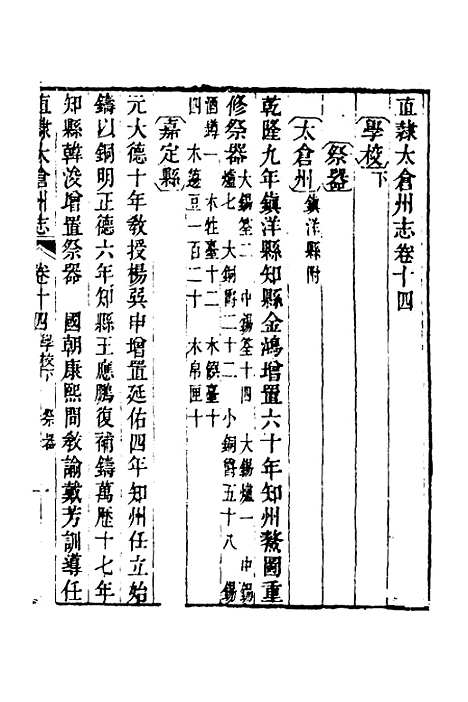 直隸太倉州志卷十四
學校下
祭器
太倉州 鎮洋縣附
乾隆九年鎮洋縣知縣金鴻增置六十年知州鰲圖重
修祭器 大錫簠二 中錫簠十四 大錫爐一 中錫
爐七 大銅爵二十二 小銅爵五十八 錫
酒罇一 木牲臺十二 木饌臺十
四 木籩豆一百二十 木帛匣十
嘉定縣
元大德十年教授楊巽申增置延佑四年知州任立始
鑄以銅明正德六年知縣王應鵬復補鑄萬歷十七年
知縣韓浚增置祭器 國朝康熙間教諭戴芳訓導任
直隸太倉州志 卷十四 學校下 祭器 一